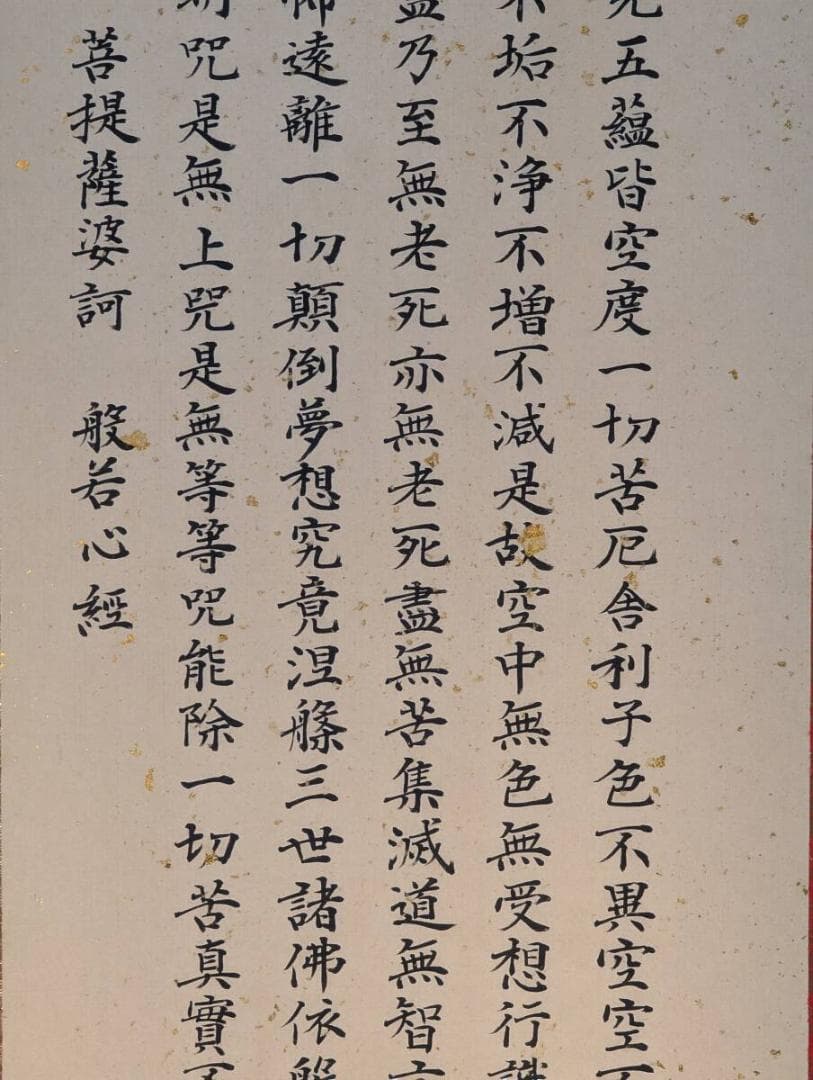 五蘊皆空度一切苦厄舍利子色不異空空不
不垢不浄不増不減是故空中無色無受想行識
盡乃至無老死亦無老死盡無苦集滅道無智亦
遠離一切顛倒夢想究竟涅槃三世諸佛依般
明咒是無上咒是無等等咒能除一切苦真實不
菩提薩婆訶 般若心經